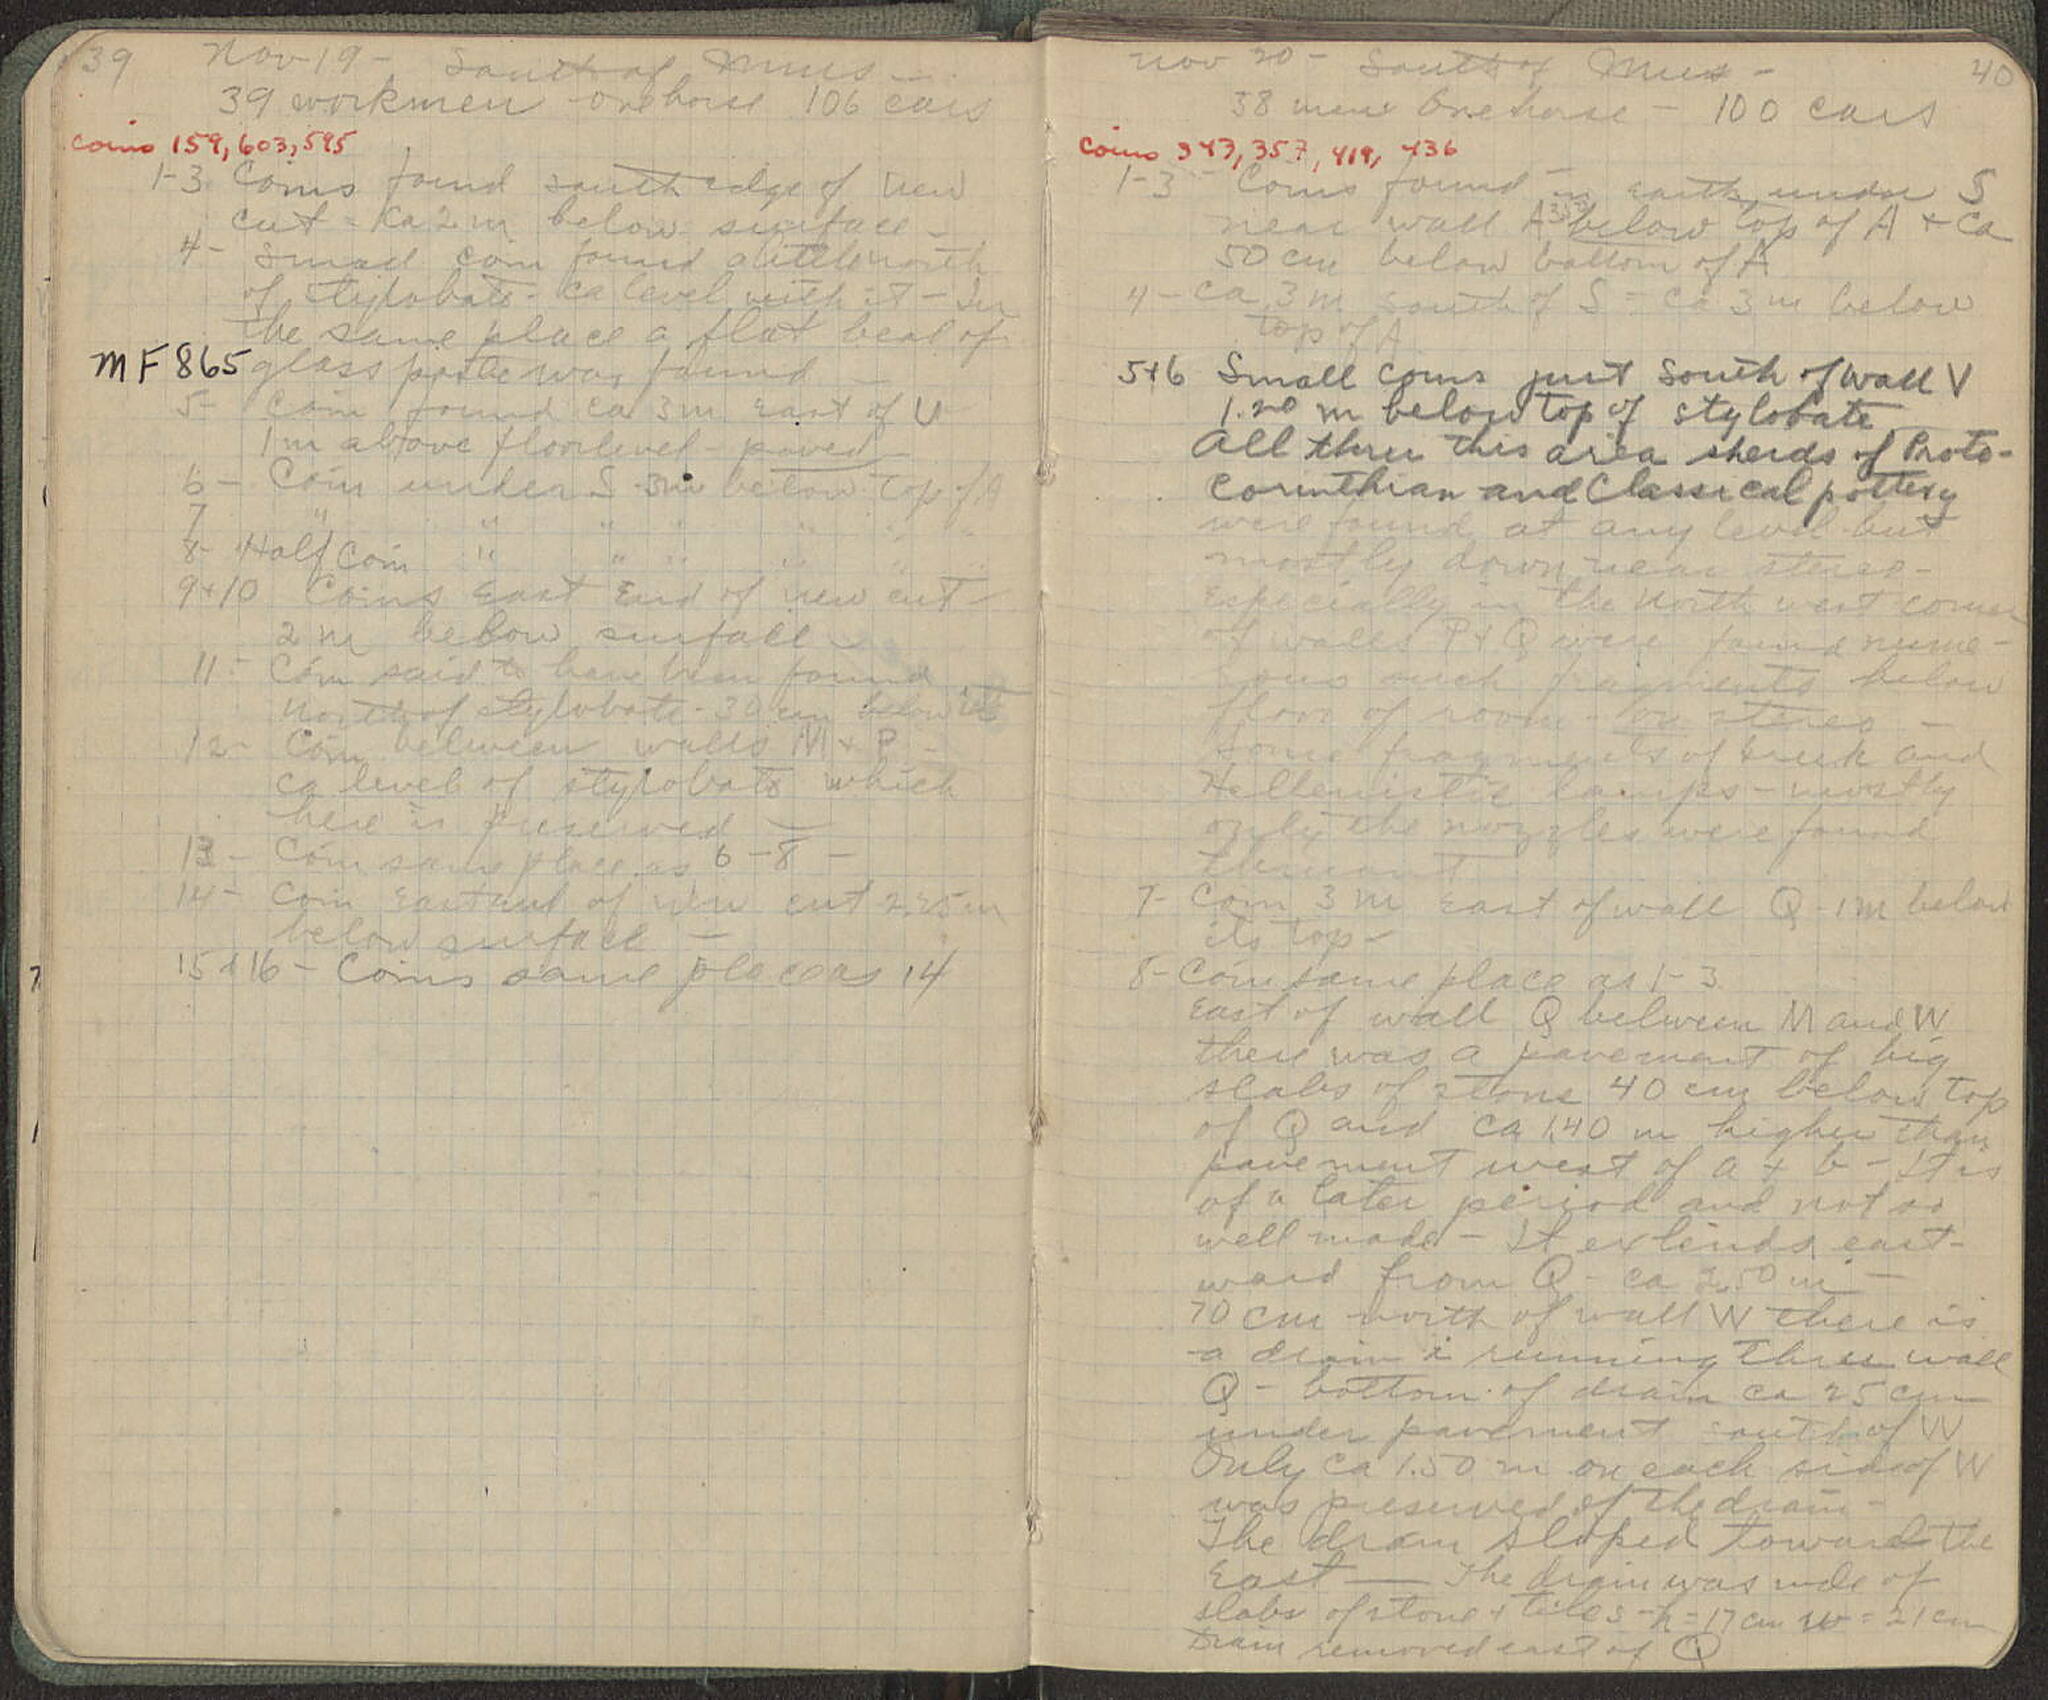 39 Nov 19 - South of Mus -
39 workmen one horse 106 cars
coins 159, 603, 595
1-3 Coins found south edge of new
cut - ca 2 m below surface -
4- Small coin found a little north
of stylobate - ca level with it - In
the same place a flat bead of
MF 865 glass paste was found -
5- Coin found ca 3 m east of U
1 m above floor level - paved -
6- Coin under S 3m below top of A
7 " " " " " " "
8- Half Coin " " " " " "
9+10 Coins East End of new cut -
2 m below surface -
11- Coin said to have been found
North of stylobate - 30 cm below its
12- Coin between walls M + P -
ca level of stylobate which
here is preserved -
13- Coin same place as 6-8 -
14- Coin East end of new cut 2.25 m
below surface -
15+16 - Coins same place as 14
Nov 20 - South of Mus - 40
38 men One horse - 100 cars
coins 343, 357, 419, 436
1-3 - Coins found in earth under S
near wall A below top of A + ca
50 cm below bottom of A
4- ca 3 m south of S = ca 3 m below
top of A
5+6 Small coins just South of wall V
1.20 m below top of stylobate
All thru this area sherds of Proto-
corinthian and Classical pottery
were found at any level but
mostly down near stereo-
Especially in the North west corner
of walls P + Q were found nume-
rous such fragments below
floor of room - on stereo -
some fragments of Greek and
Hellenistic lamps - mostly
only the nozzles were found
7- Coin 3 m east of wall Q - 1 m below
its top -
8- Coin same place as 1-3
East of wall Q between M and W
there was a pavement of big
slabs of stone 40 cm below top
of Q and ca 1.40 m higher than
pavement west of a + b - It is
of a later period and not so
well made - It extends east-
ward from Q - ca 2.50 m -
70 cm north of wall W there is
a drain i running thru wall
Q - bottom of drain ca 25 cm
under pavement south of W
Only ca 1.50 m on each side of W
was preserved of the drain -
The drain sloped towards the
East — The drain was mde of
slabs of stone + tiles - h = 17 cm w = 21 cm
Drain removed east of Q